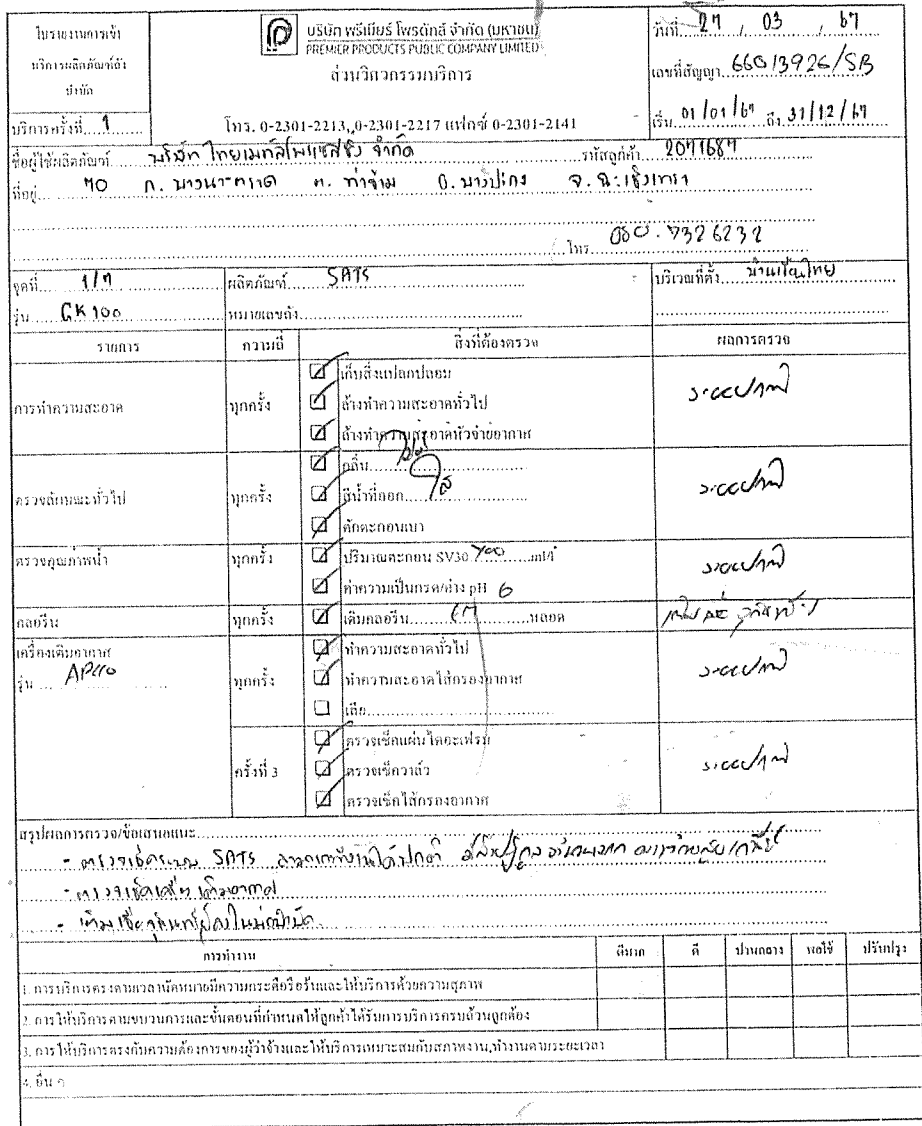 ใบรายงานการเข้า
บริการผลิตภัณฑ์ถัง
บำบัด
บริการครั้งที่ 1
บริษัท พรีเมียร์ โพรดักส์ จำกัด (มหาชน)
PREMIER PRODUCTS PUBLIC COMPANY LIMITED
ส่วนวิศวกรรมบริการ
โทร. 0-2301-2213, 0-2301-2217 แฟกซ์ 0-2301-2141
วันที่ 27 / 03 / 67
เลขที่สัญญา 66013926/SB
เริ่ม 01/01/67 ถึง 31/12/67
ชื่อผู้ใช้ผลิตภัณฑ์ บริษัท ไทยเมทัลโพรเซสซิ่ง จำกัด รหัสลูกค้า 2071687
ที่อยู่ 70 ถ. บางนา-ตราด ต. ท่าข้าม อ. บางปะกง จ. ฉะเชิงเทรา
โทร.
จุดที่ 1/7 ผลิตภัณฑ์ SATS บริเวณที่ตั้ง
รุ่น GK100 หมายเลขถัง
รายการ ความถี่ สิ่งที่ต้องตรวจ ผลการตรวจ
การทำความสะอาด ทุกครั้ง
เก็บสิ่งแปลกปลอม
ล้างทำความสะอาดทั่วไป
ล้างทำความสะอาดหัวจ่ายอากาศ
ระบบปกติ
ตรวจลักษณะทั่วไป ทุกครั้ง
กลิ่น
สีน้ำที่ออก ใส
ตักตะกอนเบา
ระบบปกติ
ตรวจคุณภาพน้ำ ทุกครั้ง
ปริมาณตะกอน SV30 ml/l
ค่าความเป็นกรด/ด่าง pH 6
ระบบปกติ
คลอรีน ทุกครั้ง เติมคลอรีน หลอด
เครื่องเติมอากาศ
รุ่น ทุกครั้ง
ทำความสะอาดทั่วไป
ทำความสะอาดไส้กรองอากาศ
เสีย
ระบบปกติ
ครั้งที่ 3
ตรวจเช็คแผ่นไดอะเฟรม
ตรวจเช็ควาล์ว
ตรวจเช็คไส้กรองอากาศ
ระบบปกติ
สรุปผลการตรวจ/ข้อเสนอแนะ
- ตรวจเช็คระบบ SATS สามารถทำงานได้ปกติ
- ตรวจเช็คเครื่องเติมอากาศ
- เติมเชื้อจุลินทรีย์ลงในบ่อบำบัด
การทำงาน ดีมาก ดี ปานกลาง พอใช้ ปรับปรุง
1. การบริการตรงตามเวลานัดหมายมีความกระตือรือร้นและให้บริการด้วยความสุภาพ
2. การให้บริการตามขบวนการและขั้นตอนที่กำหนดให้ลูกค้าได้รับการบริการครบถ้วนถูกต้อง
3. การให้บริการตรงกับความต้องการของผู้ว่าจ้างและให้บริการเหมาะสมกับสภาพงาน,ทำงานตามระยะเวลา
4. อื่น ๆ